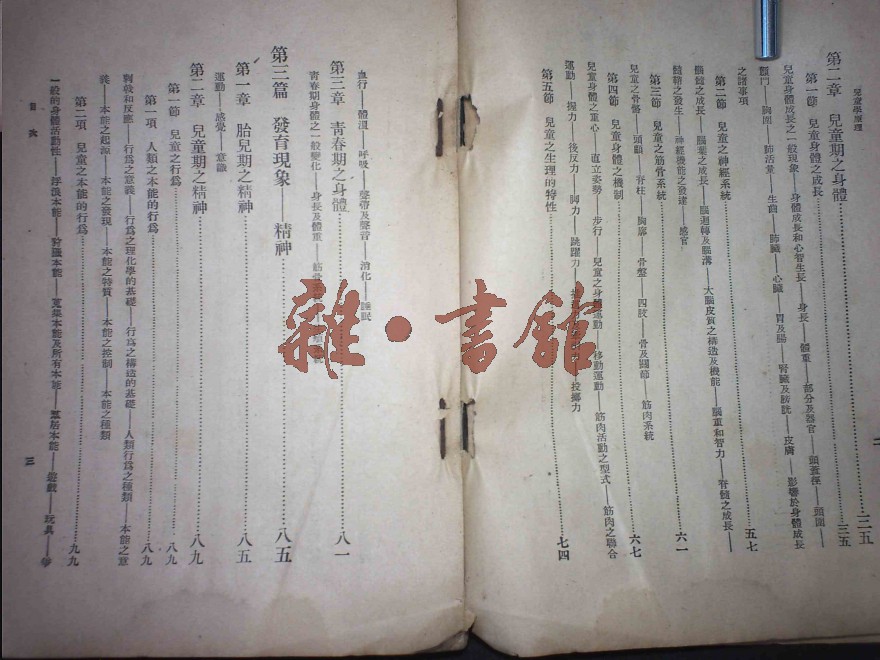 兒童學原理
二
第二章 兒童期之身體……三五
第一節 兒童身體之成長……三五
兒童身體成長之一般現象——身體成長和心智生長——身長——體重——部分及器官——頭蓋徑——頭圍——
顱門——胸圍——肺活量——生齒——肺臟——心臟——胃及腸——腎臟及膀胱——皮膚——影響於身體成長
之諸事項
第二節 兒童之神經系統……五七
腦髓之成長——腦葉之成長——腦迴轉及腦溝——大腦皮質之構造及機能——腦重和智力——脊髓之成長——
髓鞘之發生——神經機能之發達——感官
第三節 兒童之筋骨系統……六一
兒童之骨骼——頭顱——脊柱——胸廓——骨盤——四肢——骨及關節——筋肉系統
第四節 兒童身體之機制……六七
兒童身體之重心——直立姿勢——步行——兒童之身體運動——移動運動——筋肉活動之型式——筋肉之聯合
運動——握力——後反力——脚力——跳躍力——投擲力
第五節 兒童之生理的特性……七四
血行——體溫——呼吸——聲帶及聲音——消化——睡眠
第三章 青春期之身體……八一
青春期身體之一般變化——身長及體重——筋骨
第三篇 發育現象——精神……八五
第一章 胎兒期之精神……八五
運動——感覺——意識
第二章 兒童期之精神……八九
第一節 兒童之行爲……八九
第一項 人類之本能的行爲……八九
刺戟和反應——行爲之意義——行爲之理化學的基礎——行爲之構造的基礎——人類行爲之種類——本能之意
義——本能之起源——本能之發現——本能之特質——本能之控制——本能之種類
第二項 兒童之本能的行爲……九九
一般的身體活動性——浮浪本能——狩獵本能——蒐集本能及所有本能——羣居本能——遊戲——玩具——
目次
三
雜·書館